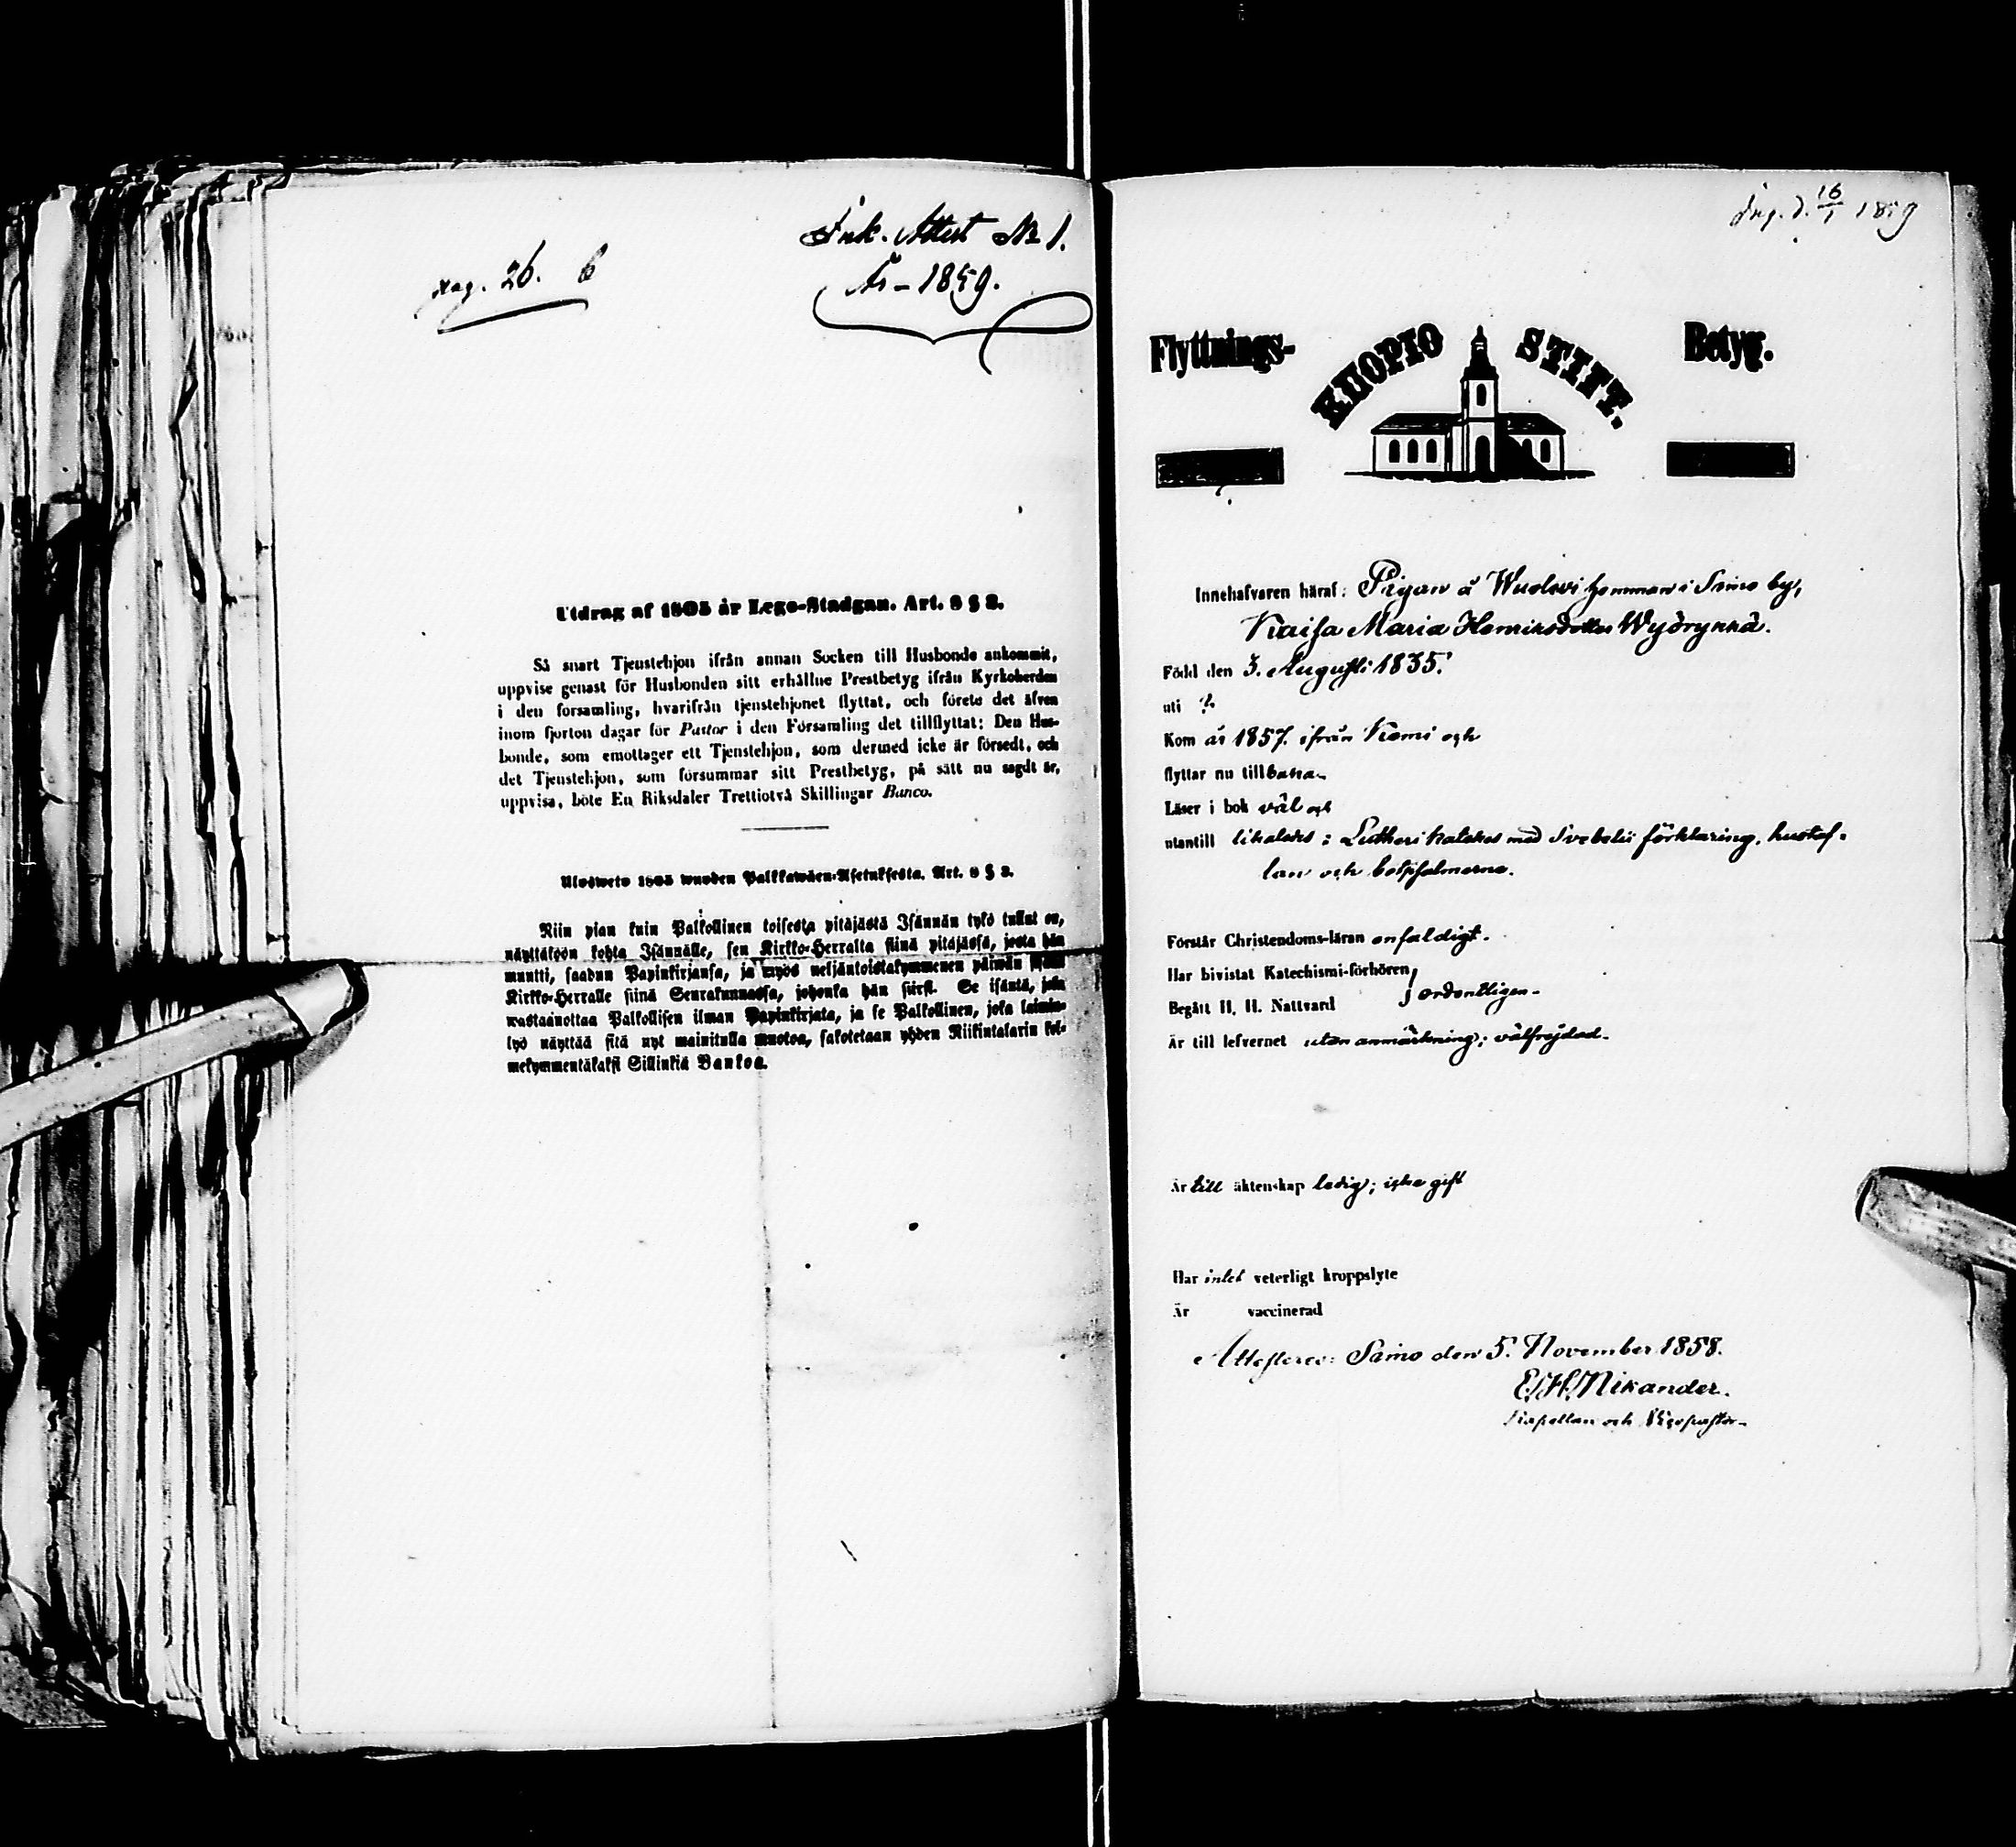 Ink. Attest No 1.
pag. 26. 6
År - 1859.
Utdrag af 1805 år Lego-Stadgan. Art. 8 § 2.
Så snart Tjenstehjon ifrån annan Socken till Husbonde ankommit,
uppvise genast för Husbonden sitt erhållne Prestbetyg ifrån Kyrkoherden
i den forsamling, hvarifrån tjenstehjonet flyttat, och förete det äfven
inom fjorton dagar för Pastor i den Församling det tillflyttat: Den Hus-
bonde, som emottager ett Tjenstehjon, som dermed icke är försedt, och
det Tjenstehjon, som försummar sitt Prestbetyg, på sätt nu sagdt är,
uppvisa, böte En Riksdaler Trettiotvå Skillingar Banco.
Ulosweto 1805 wuoden Palkkawäen-Asetuksesta. Art. 8 § 2.
Niin pian kuin Palkollinen toisesta pitäjästä Isännän tykö tullut on,
näyttäköön kohta Isännälle, sen Kirkko-Herralta siinä pitäjässä, josta hän
muutti, saadun Papinkirjansa, ja myös neljäntoistakymmenen päiwän
Kirkko-Herralle siinä Seurakunnassa, johonka hän siirsi. Se isäntä, joka
wastaanottaa Palkollisen ilman Papinkirjata, ja se Palkollinen, joka laimin-
lyö näyttää sitä nyt mainitulla muotoa, sakotetaan yhden Riikintalarin kol-
mekymmentäkaksi Sillinkiä Bankoa.
Ing. d. 16/1 1859
Flyttnings- KUOPIO STIFT. Betyg.
Innehafvaren häraf: Pigan å Wuolevi hemman i Simo by,
Kaisa Maria Henriksdotter Wydrynkä.
Född den 3. Augusti 1835.
uti ?.
Kom år 1857. ifrån Kemi och
flyttar nu tillbaka.
Läser i bok väl och
utantill likaledes: Lutheri kateches med Svebelii förklaring, hustaf-
lan och botpsalmerne.
Förstår Christendoms-läran enfaldigt.
Har bivistat Katechismi-förhören
Begått H. H. Nattvard } ordentligen.
Är till lefvernet utan anmärkning; välfrejdad.
Är till äktenskap ledig; icke gift
Har intet veterligt kroppslyte
Är vaccinerad
Attesterar: Simo den 5. November 1858.
E. H. Nikander.
Kapellan och Vicepastor.